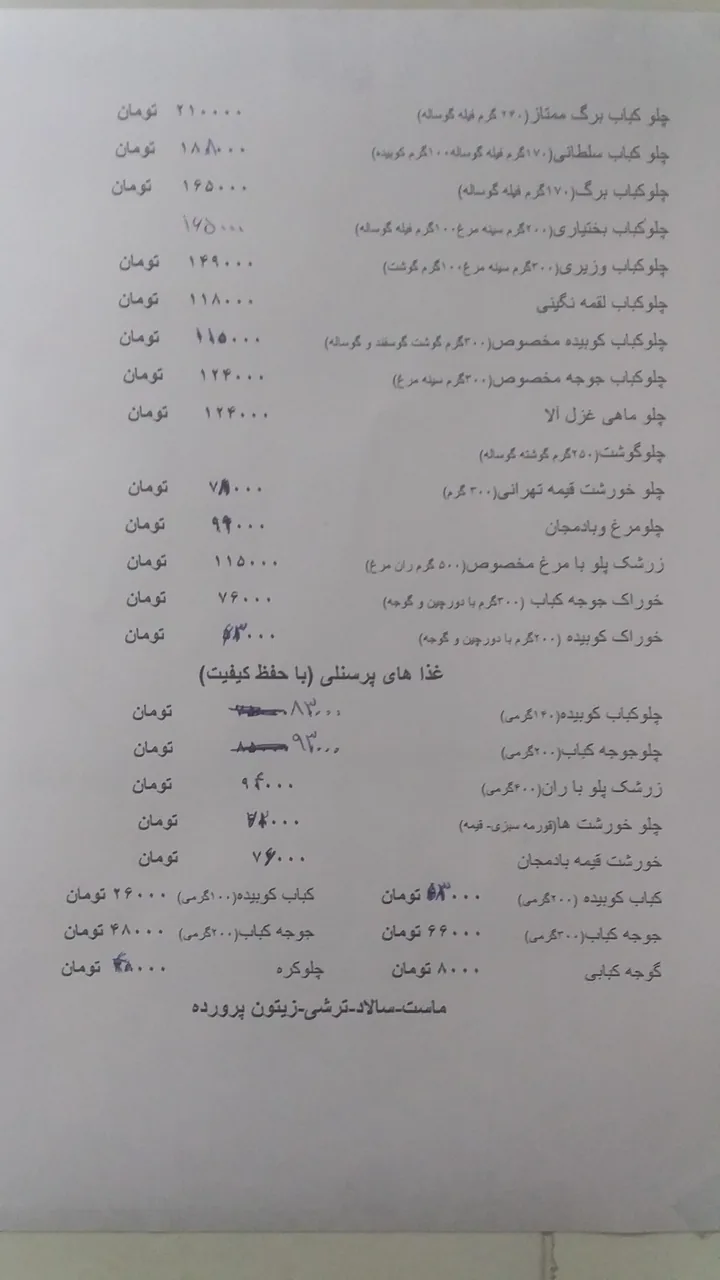 چلو کباب برگ ممتاز(۲۴۰ گرم فیله گوساله) ۲۱۰۰۰۰ تومان
چلو کباب سلطانی(۱۷۰گرم فیله گوساله۱۰۰گرم کوبیده) ۱۸۸۰۰۰ تومان
چلوکباب برگ(۱۷۰گرم فیله گوساله) ۱۶۵۰۰۰ تومان
چلوکباب بختیاری(۲۰۰گرم سینه مرغ۱۰۰گرم فیله گوساله) ۱۶۵۰۰۰
چلوکباب وزیری(۳۰۰گرم سینه مرغ۱۰۰گرم گوشت) ۱۴۹۰۰۰ تومان
چلوکباب لقمه نگینی ۱۱۸۰۰۰ تومان
چلوکباب کوبیده مخصوص(۳۰۰گرم گوشت گوسفند و گوساله) ۱۱۵۰۰۰ تومان
چلوکباب جوجه مخصوص(۳۰۰گرم سینه مرغ) ۱۲۴۰۰۰ تومان
چلو ماهی غزل آلا ۱۲۴۰۰۰ تومان
چلوگوشت(۲۵۰گرم گوشته گوساله)
چلو خورشت قیمه تهرانی(۳۰۰ گرم) تومان
چلومرغ وبادمجان تومان
زرشک پلو با مرغ مخصوص(۵۰۰ گرم ران مرغ) ۱۱۵۰۰۰ تومان
خوراک جوجه کباب (۳۰۰گرم با دورچین و گوجه) ۷۶۰۰۰ تومان
خوراک کوبیده (۲۰۰گرم با دورچین و گوجه) ۶۳۰۰۰ تومان
غذا های پرسنلی (با حفظ کیفیت)
چلوکباب کوبیده(۱۴۰گرمی) ۸۳۰۰۰ تومان
چلوجوجه کباب(۲۰۰گرمی) ۹۳۰۰۰ تومان
زرشک پلو با ران(۴۰۰گرمی) تومان
چلو خورشت ها(قورمه سبزی- قیمه) تومان
خورشت قیمه بادمجان ۷۶۰۰۰ تومان
کباب کوبیده (۲۰۰گرمی) ۵۳۰۰۰ تومان کباب کوبیده(۱۰۰گرمی) ۲۶۰۰۰ تومان
جوجه کباب(۳۰۰گرمی) ۶۶۰۰۰ تومان جوجه کباب(۲۰۰گرمی) ۴۸۰۰۰ تومان
گوجه کبابی ۸۰۰۰ تومان چلوکره تومان
ماست-سالاد-ترشی-زیتون پرورده